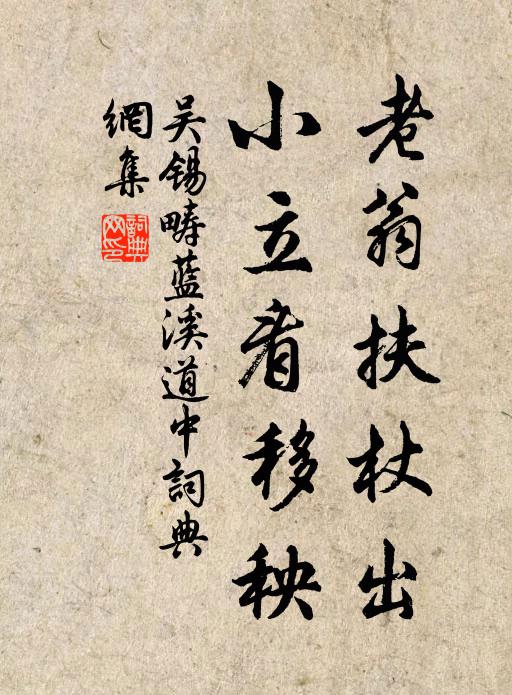 老翁扶杖出
小立看移秧
吴锡畴蓝溪道中詞典
網集
詞典
网印